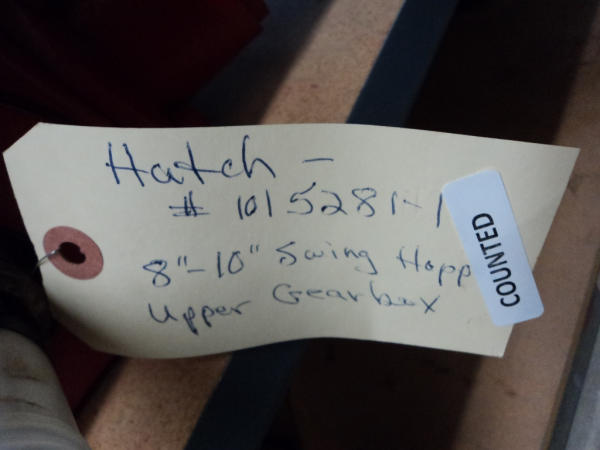 Hatch -
# 1015281-1
8"-10" Swing Hopp
Upper Gearbox
COUNTED